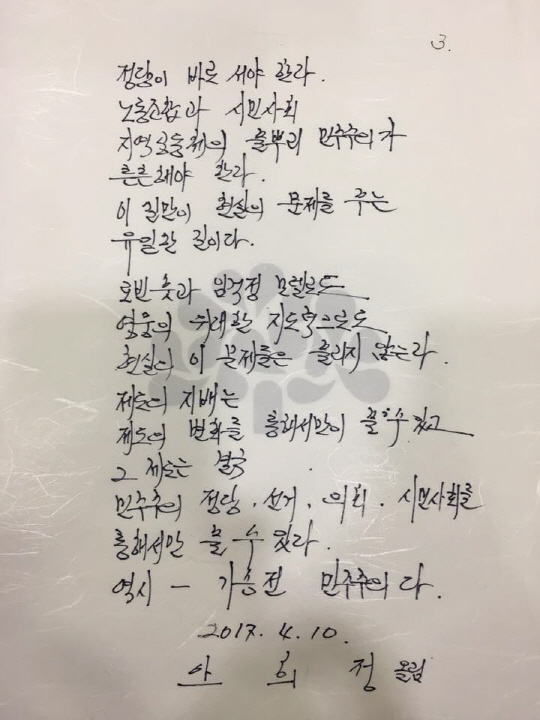 3.
정당이 바로 서야 한다.
노동조합과 시민사회
지역공동체의 풀뿌리 민주주의가
튼튼해야 한다.
이 길만이 현실의 문제를 푸는
유일한 길이다.
로빈 훗과 임꺽정 모델로도
영웅의 위대한 지도력으로도
현실의 이 문제들은 풀리지 않는다.
제도의 지배는
제도의 변화를 통해서만이 풀 수 있고
그 제도는
민주주의 정당, 선거, 의회, 시민사회를
통해서만 풀 수 있다.
역시 - 가 민주주의다.
2017. 4. 10.
안 희 정 올림